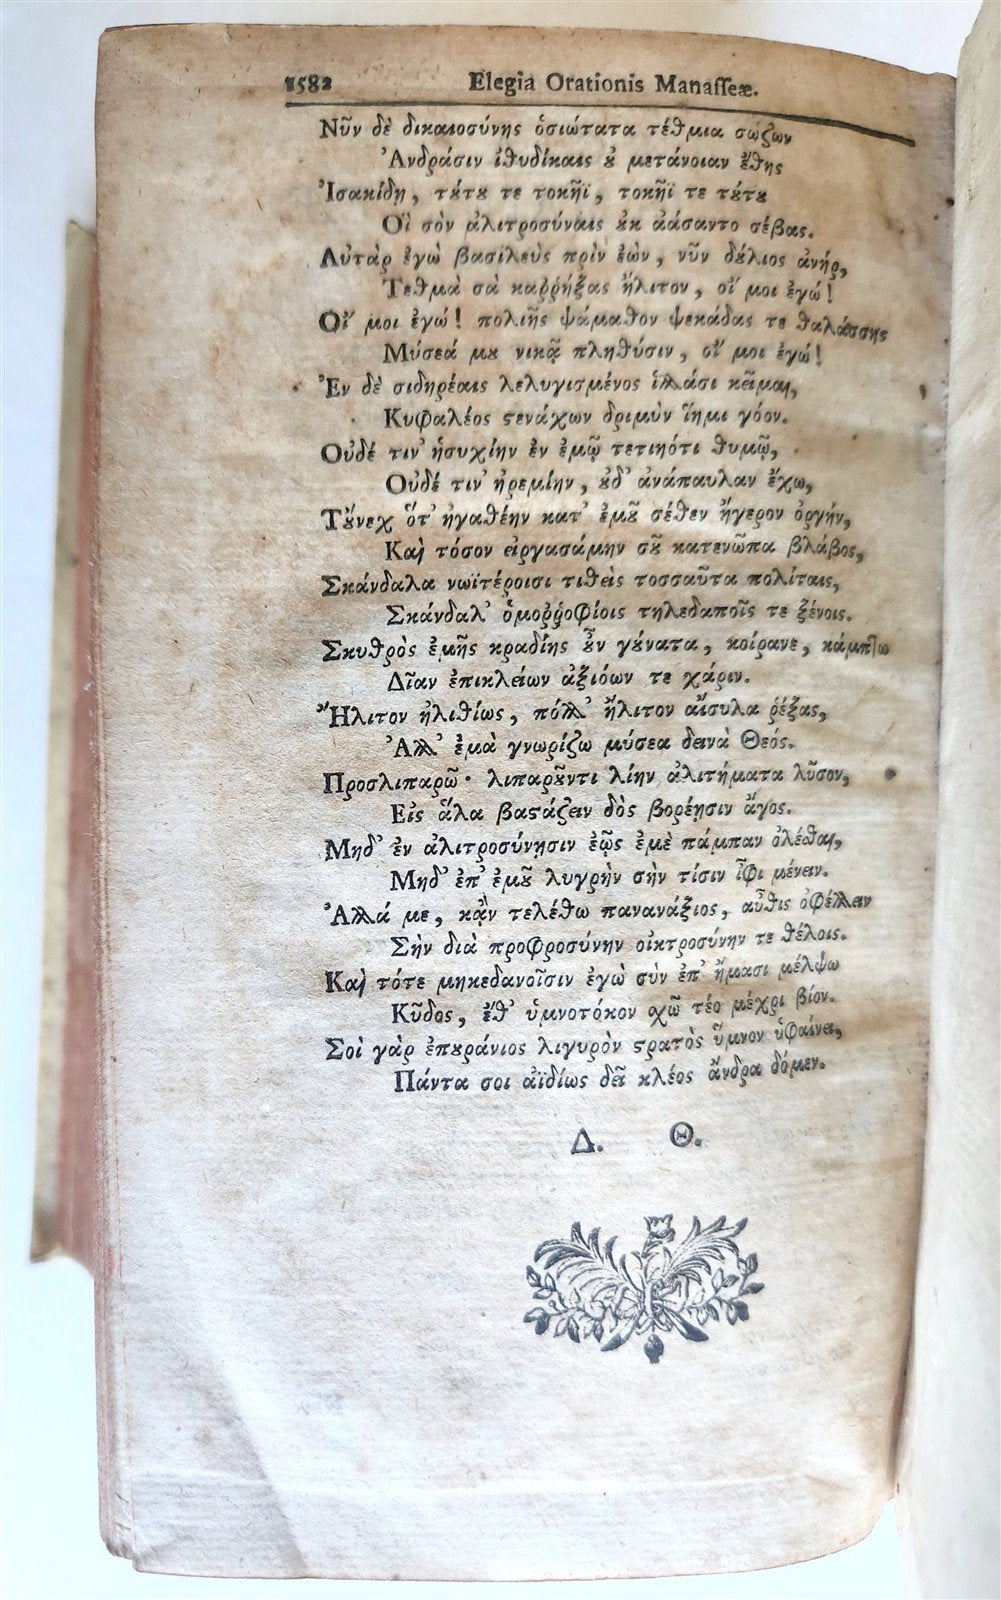 1582 Elegia Orationis Manaſſeæ.
Νῦν δὲ δικαιοσύνης ὁσιώτατα τέθμια σώζων
Ἀνδράσιν ἰθυδίκαις ȣ μετάνοιαν ἔθης
Ἰσακίδῃ, τȣ́τȣ τε τοκῆϊ, τοκῆϊ τε τȣ́τȣ
Οἳ σὸν ἀλιτροσύναις ȣ̓κ ἀάσαντο σέβας.
Αὐτὰρ ἐγὼ βασιλεὺς πρὶν ἐὼν, νῦν δȣ́λιος ἀνήρ,
Τεθμὰ σὰ καῤῥήξας ἤλιτον, οἴ μοι ἐγώ!
Οἴ μοι ἐγώ! πολιῆς ψάμαθον ψεκάδας τε θαλάσσης
Μύσεά μȣ νικᾷ πληθύσιν, οἴ μοι ἐγώ!
Ἐν δὲ σιδηρέαις λελυγισμένος ἱμάσι κεῖμαι,
Κυφαλέος ϛενάχων δριμὺν ἵημι γόον.
Οὐδέ τιν' ἡσυχίην ἐν ἐμῷ τετιηότι θυμῷ,
Οὐδέ τιν' ἠρεμίην, ȣ̓δ' ἀνάπαυλαν ἔχω,
Τȣ́νεχ ὅτ' ἠγαθέην κατ' ἐμȣ͂ σέθεν ἤγερον ὀργήν,
Καὶ τόσον εἰργασάμην σȣ͂ κατενῶπα βλάβος,
Σκάνδαλα νωϊτέροισι τιθεὶς τοσσαῦτα πολίταις,
Σκάνδαλ' ὁμοῤῥοφίοις τηλεδαποῖς τε ξένοις.
Σκυθρὸς ἐμῆς κραδίης ȣ̓͂ν γȣ́νατα, κοίρανε, κάμπτω
Δῖαν ἐπικλείων ἀξιόων τε χάριν.
Ἤλιτον ἠλιθίως, πόλλ' ἤλιτον αἴσυλα ῥέξας,
Ἀλλ' ἐμὰ γνωρίζω μύσεα δεινὰ Θεός.
Προσλιπαρῶ· λιπαρȣ͂ντι λίην ἀλιτήματα λῦσον,
Εἰς ἅλα βαϛάζειν δὸς βορέῃσιν ἄγος.
Μηδ' ἐν ἀλιτροσύνῃσιν ἐῷς ἐμὲ πάμπαν ὀλέσθαι,
Μηδ' ἐπ' ἐμȣ͂ λυγρὴν σὴν τίσιν ἶφι μένειν.
Ἀλλά με, κᾂν τελέθω πανανάξιος, αὖθις ὀφέλλειν
Σὴν διὰ προφροσύνην οἰκτροσύνην τε θέλοις.
Καὶ τότε μηκεδανοῖσιν ἐγὼ σὺν ἐπ' ἤμασι μέλψω
Κῦδος, ἔθ' ὑμνοτόκον οχῶ τέο μέχρι βίον.
Σοὶ γὰρ ἐπȣράνιος λιγυρὸν ϛρατὸς ὕμνον ὑφαίνει,
Πάντα σοι ἀϊδίως δεῖ κλέος ἄνδρα δόμεν.
Δ. Θ.